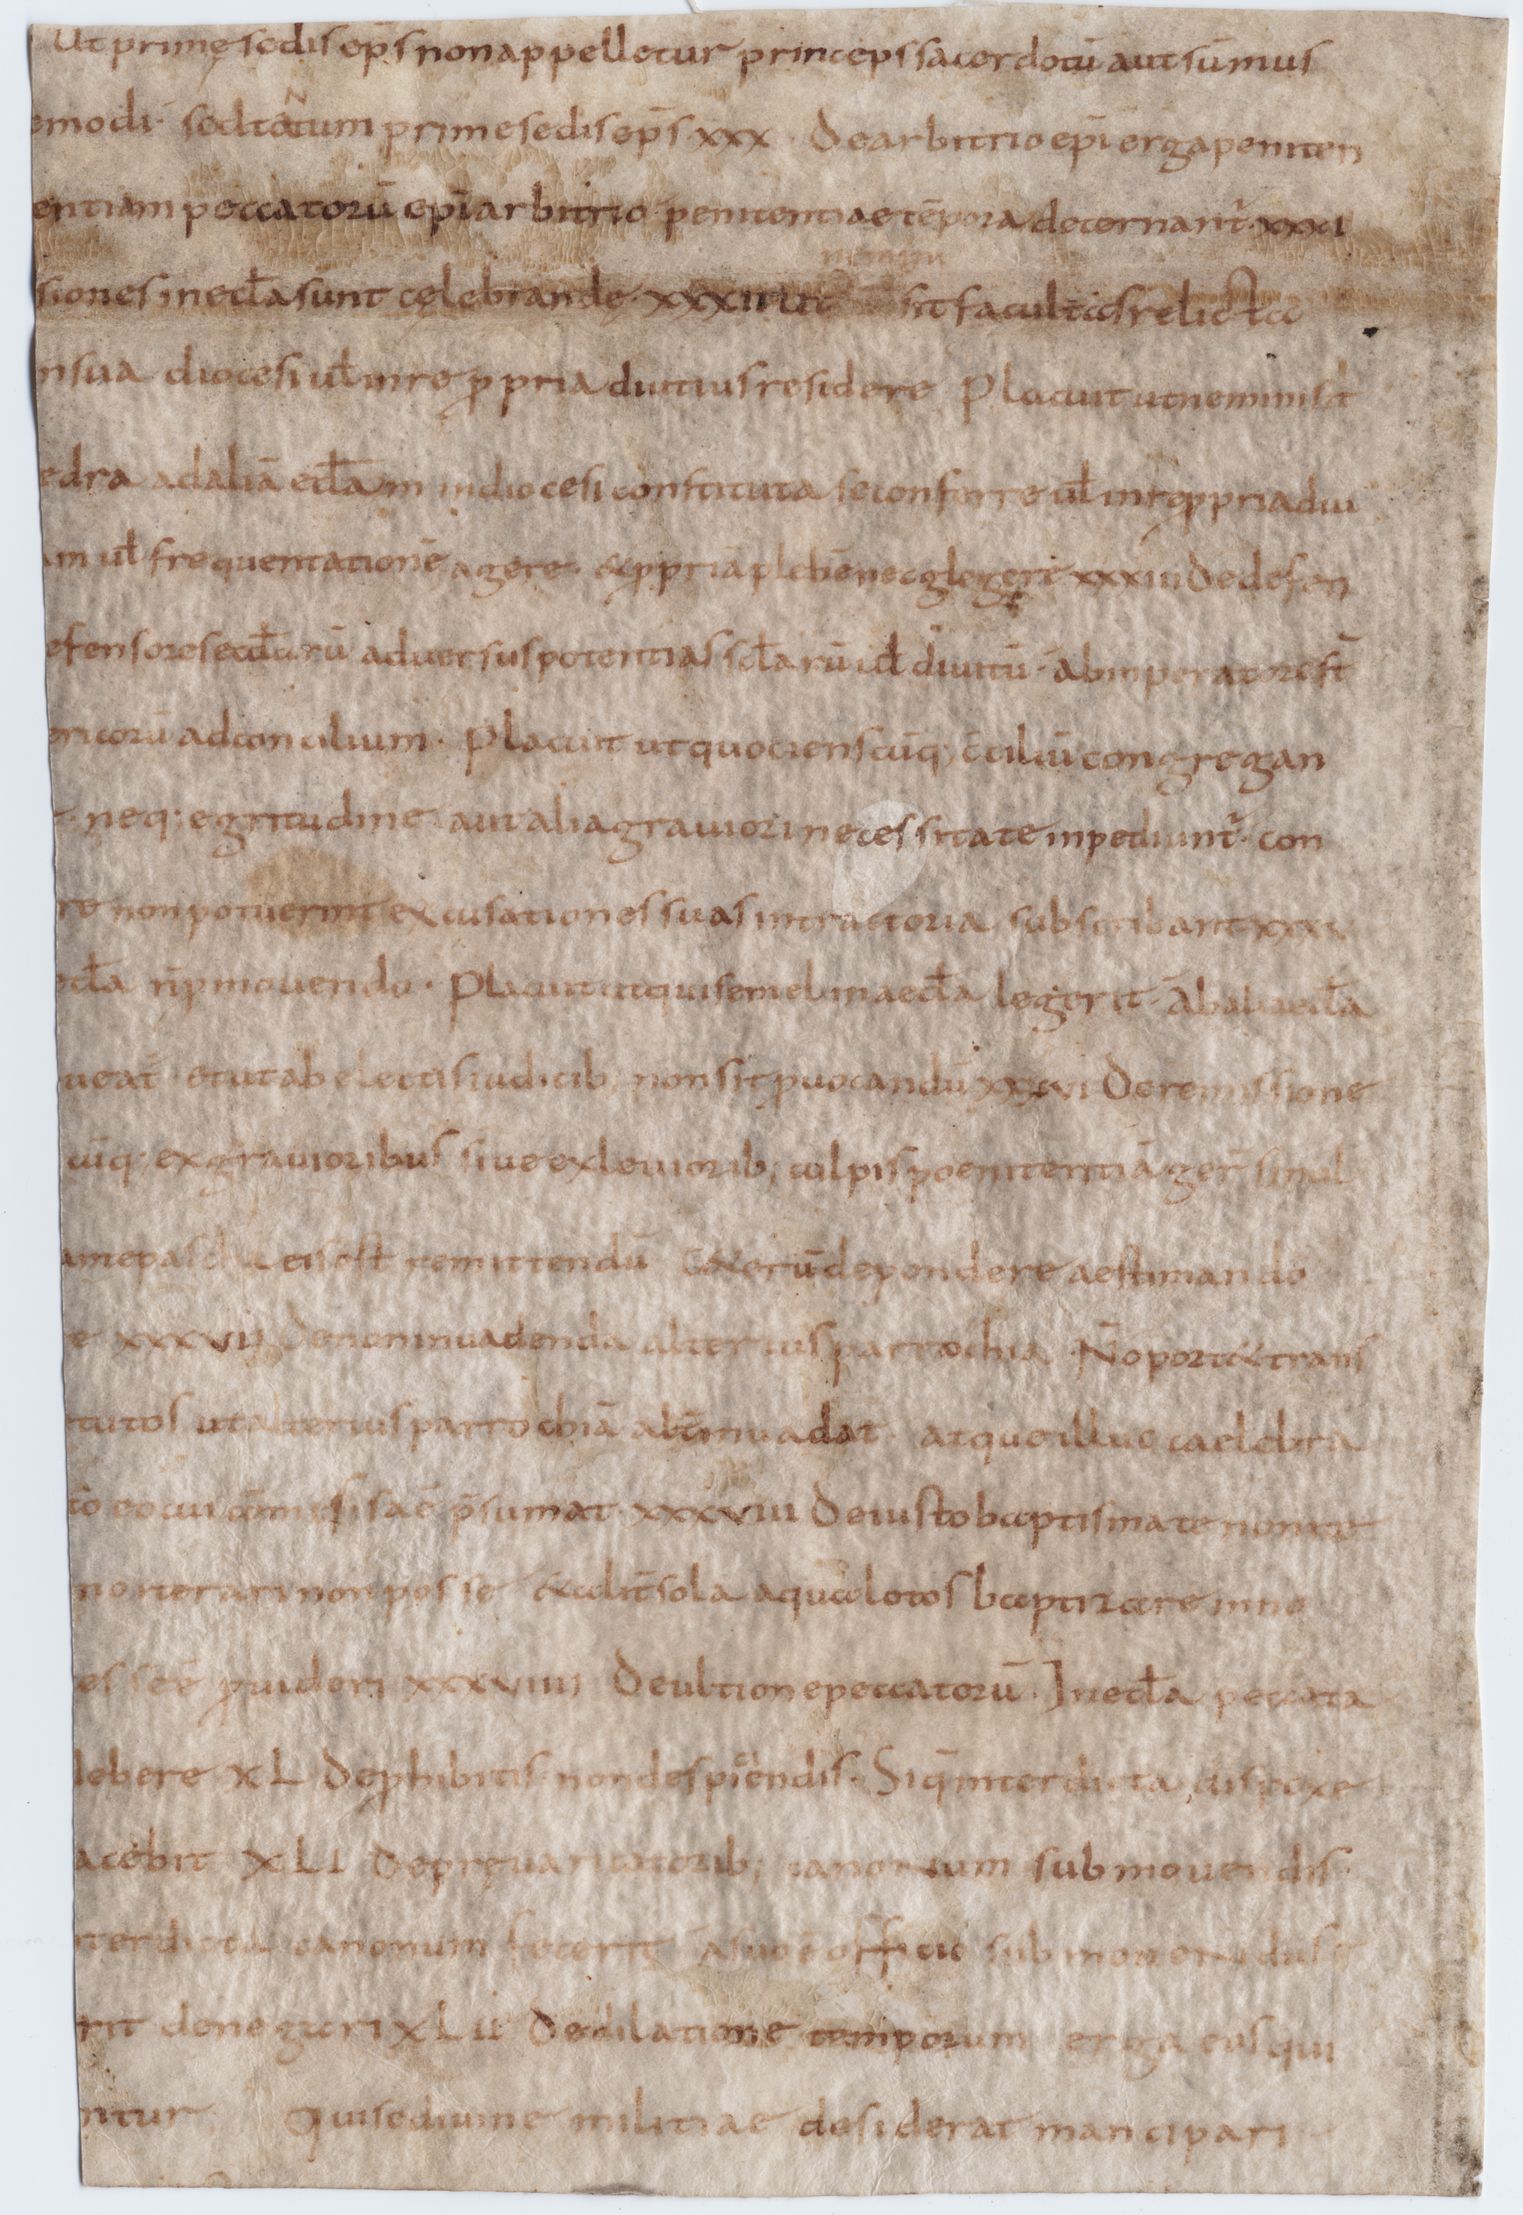 Ut primę sedis ep̄s non appelletur princeps sacerdotū aut sūmus
emodi· sed tantum prime sedis ep̄s· xxx· De arbitrio ep̄i erga peniten
entiam peccatorū ep̄i arbitrio penitentiae tēpora decernant̄· xxxi
siones in eccl̄a sunt cęlebrandę· xxxii ut nemini sit facultas relicta
n sua diocesi ul̄ in re ppria diutius residere Placuit ut nemini sit
edra ad aliā eccl̄am in diocesi constituta se conferre ul̄ in re ppria diu
am ul̄ frequentationē agere· & ppriā plebē necglegere xxxiii De defen
efensores eccl̄arū aduersus potentias scl̄arū ul̄ diuitū· ab inperatore st̄
ericorū ad concilium· Placuit ut quociens cūq; c̄ciliū congregan
neq; egritudine aut alia grauiori necessitate inpediunt̄· con
re non potuerint excusationes suas in tractoria subscribant xxxv
eccl̄a n̄ pmouendo· Placuit ut qui semel in aeccl̄a legerit· Ab alia eccl̄a
ueat̄· et ut ab electis iudicib; non sit puocandū xxxvi De remissione
cūq; ex grauioribus siue ex leuiorib; culpis poenitentiā ger̄ simul
ante pascha eis est remittendū Caeterū de pondere aestimando
e xxxvii De non inuadenda alterius parrochia N̄ oport& trans
tutos ut alterius parrochiā alt̄ inuadat· atque illuc caelebra
tō eo cui cōmissa ē p̄sumat· xxxviii De iusto baptismate non ite
no iterari non posse & colit̄ sola aqua lotos baptizare in no
esse p̄uideri xxxviiii De ultione peccatorū· In eccl̄a peccata
lebere XL De phibitis non despiciendis· Siq̄ interdicta dispexe
acebit XLI De pręuaricatorib; canonum submouendis·
terdicta canonum fecerit a suo ē officio submouendus
rit denegari XLII De dilatione temporum erga eos qui
ntur Qui se diuine militiae desiderat mancipari